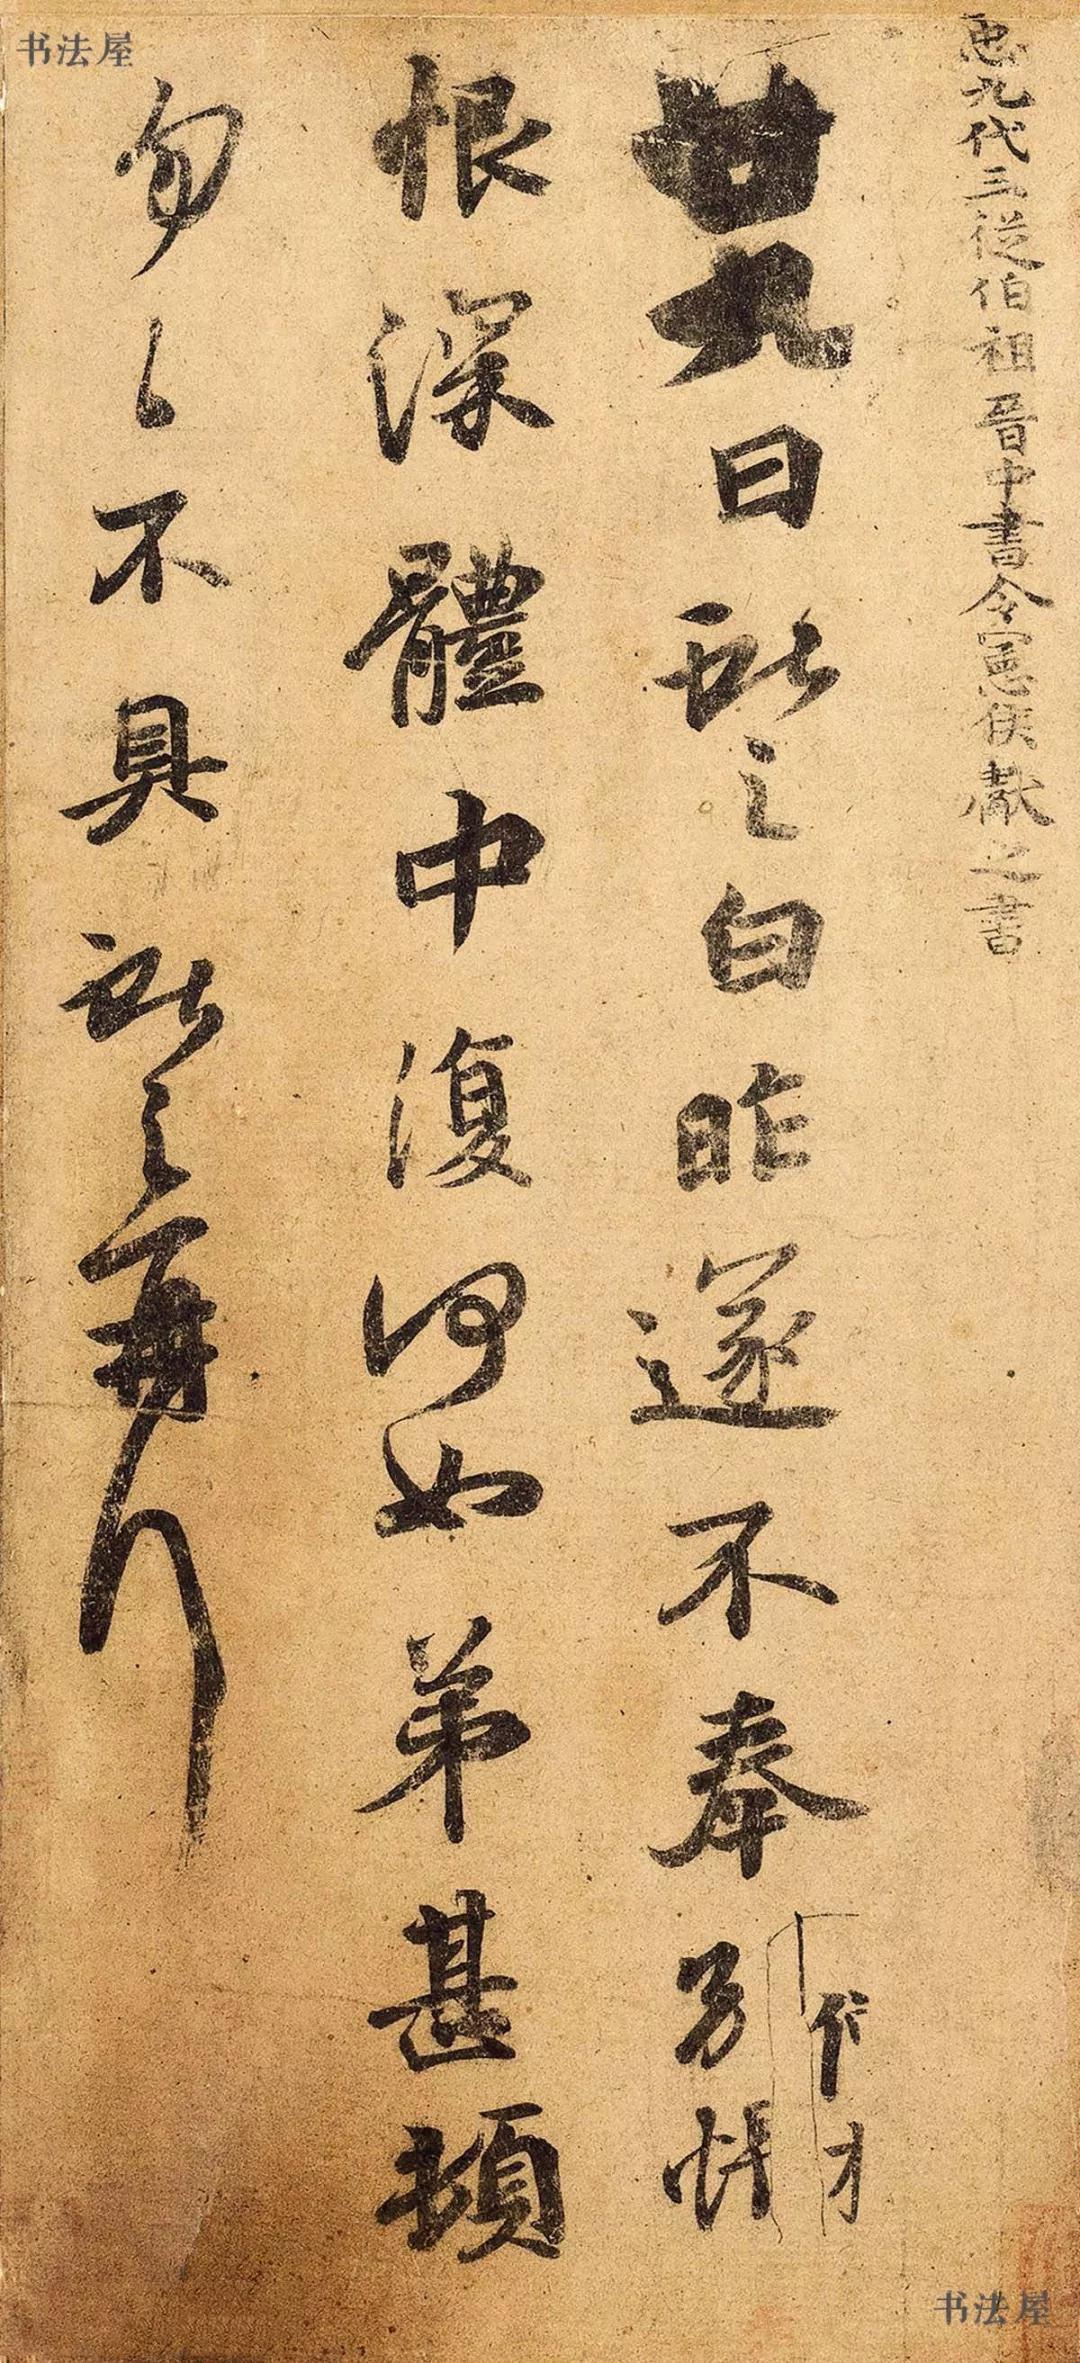 书法屋
𢘑九代三從伯祖晉中書令憲侯獻之書
廿九日獻之白昨遂不奉別悵
恨深體中復何如弟甚頓
勿〻不具獻之再拜
书法屋